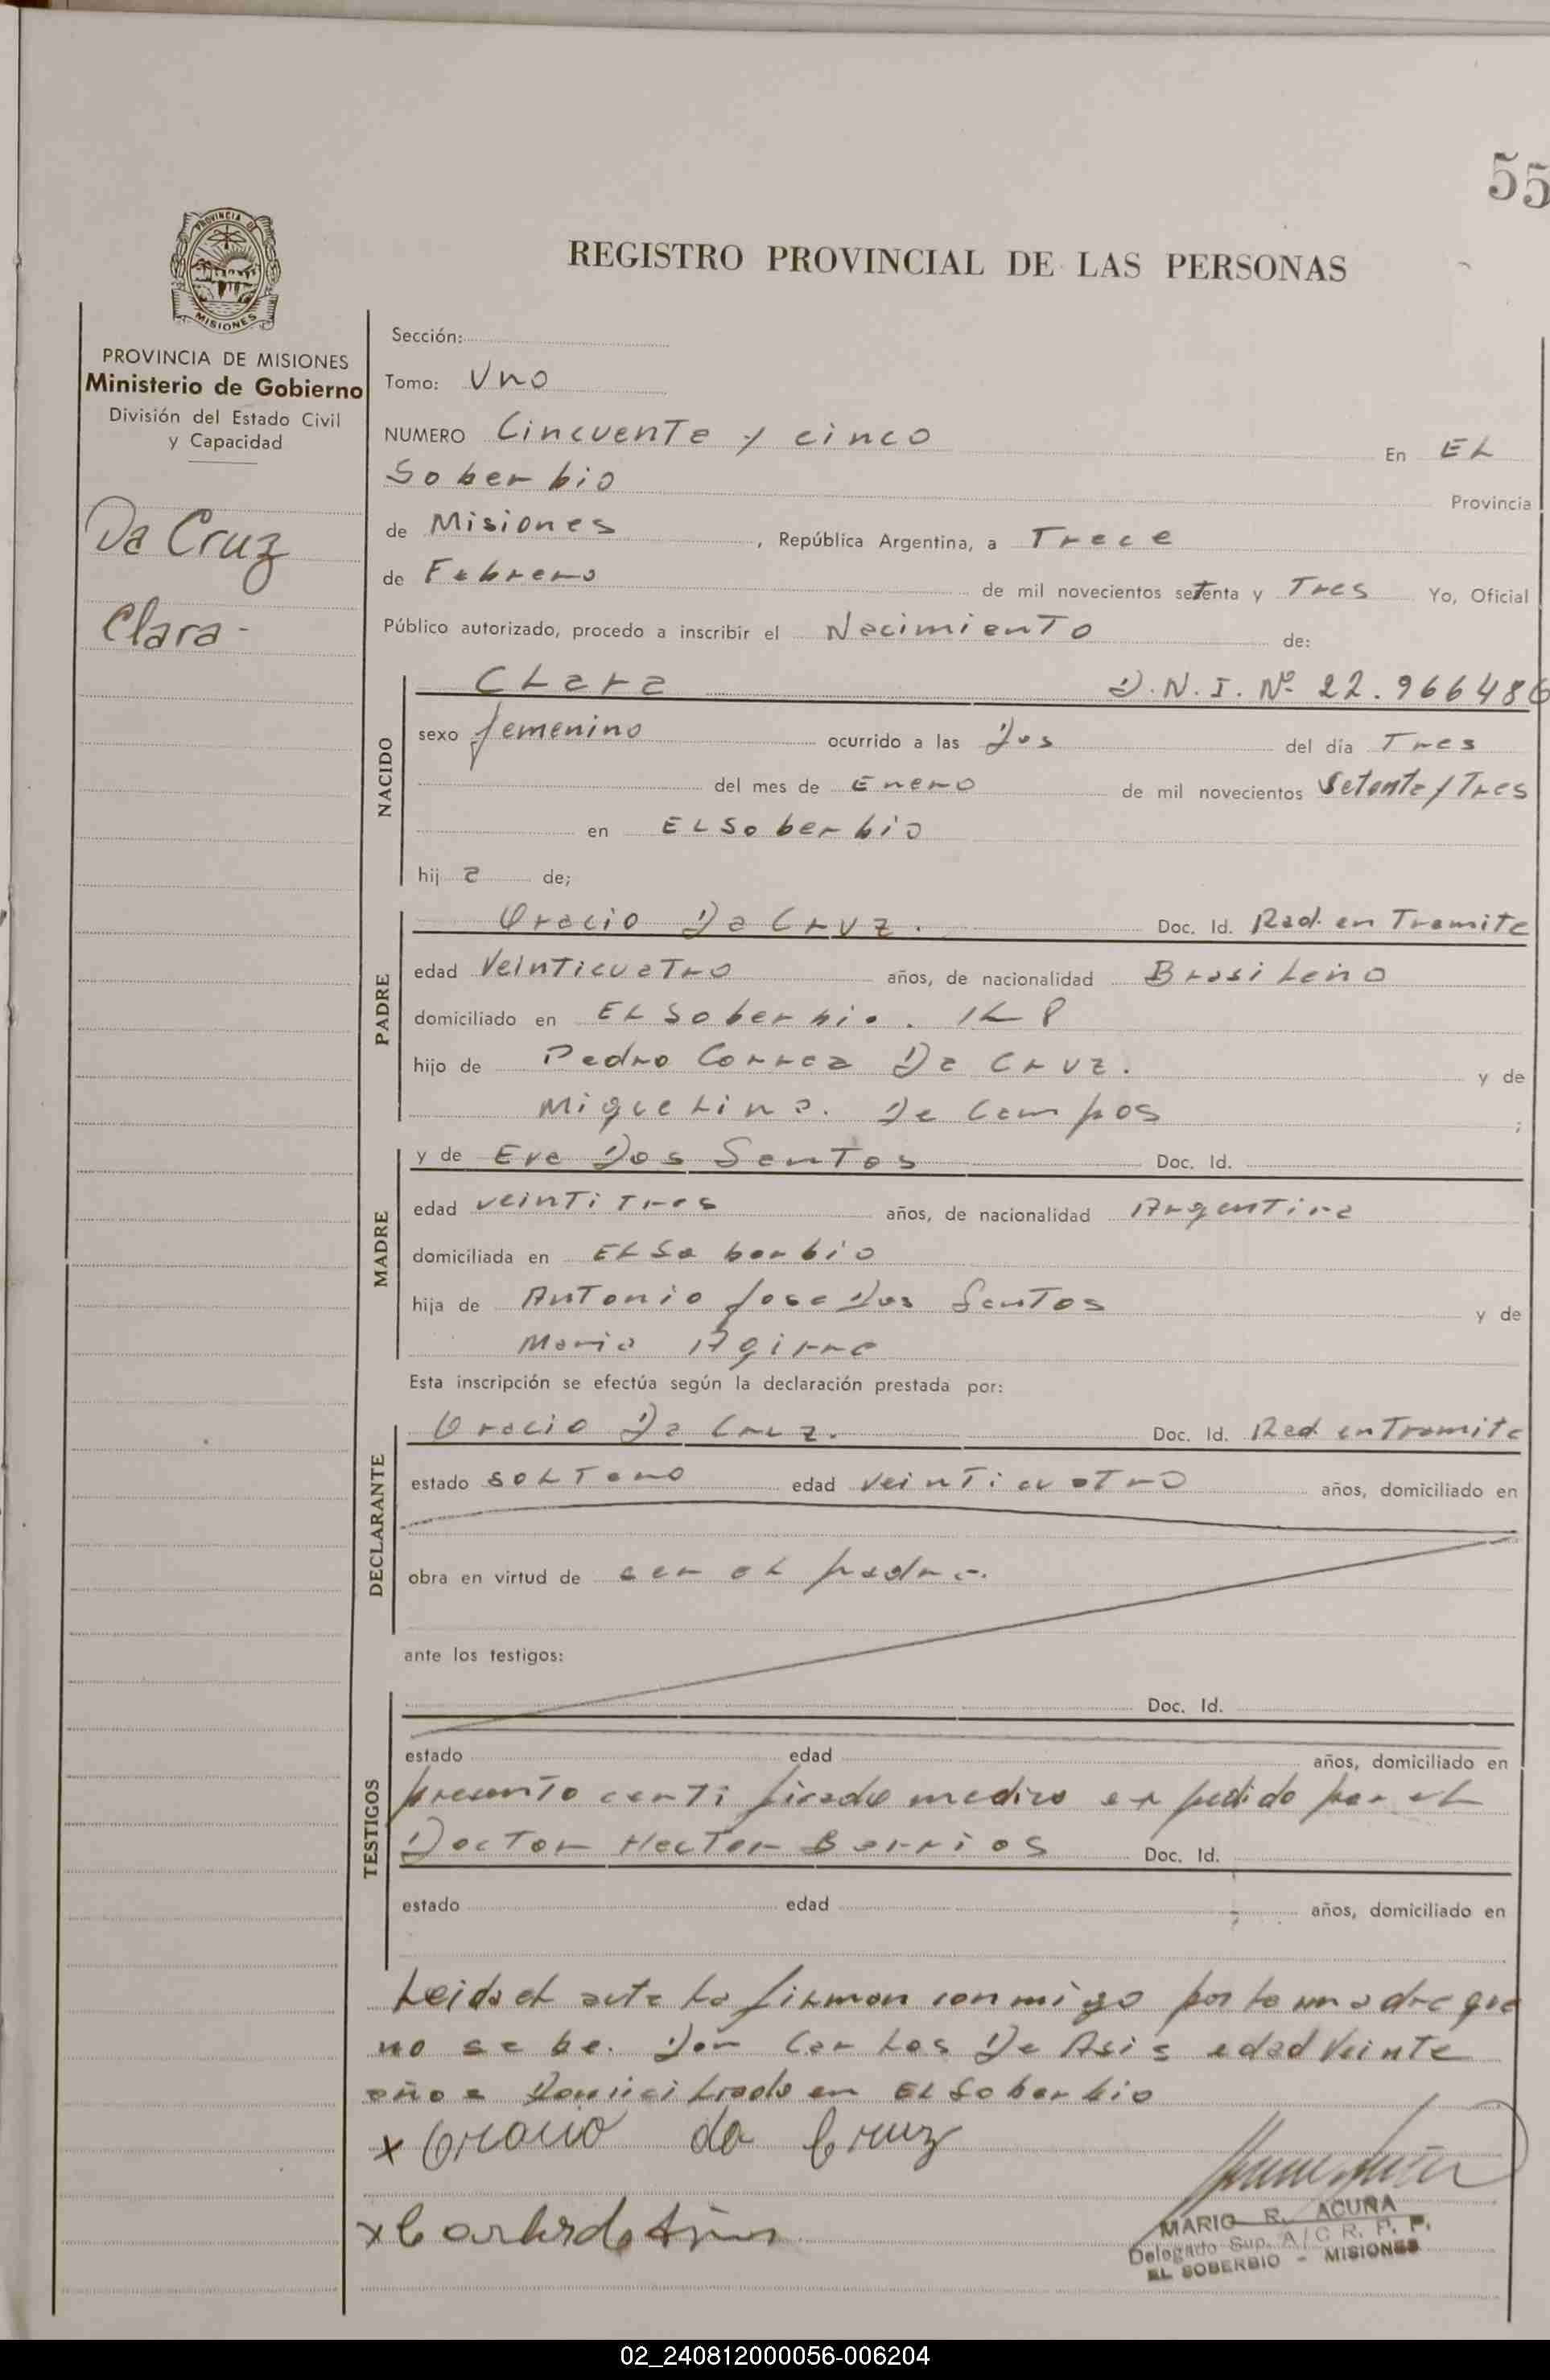 55
PROVINCIA DE
MISIONES
REGISTRO PROVINCIAL DE LAS PERSONAS
PROVINCIA DE MISIONES
Ministerio de Gobierno
División del Estado Civil
y Capacidad
Da Cruz
Clara -
Sección:
Tomo: Uno
NUMERO Cincuenta y cinco En EL
Soberbio Provincia
de Misiones , República Argentina, a Trece
de Febrero de mil novecientos setenta y Tres Yo, Oficial
Público autorizado, procedo a inscribir el Nacimiento de:
NACIDO
Clara D.N.I. Nº 22.966486
sexo femenino ocurrido a las Dos del día Tres
del mes de Enero de mil novecientos Setenta y Tres
en EL Soberbio
hij a de;
PADRE
Oracio Da Cruz. Doc. Id. Rad. en Tramite
edad Veinticuatro años, de nacionalidad Brasileño
domiciliado en EL Soberbio.
hijo de Pedro Correa Da Cruz. y de
Miguelina. De Campos ;
MADRE
y de Eva Dos Santos Doc. Id.
edad veintitres años, de nacionalidad Argentina
domiciliada en EL Soberbio
hija de Antonio Jose Dos Santos y de
Maria Agirre
Esta inscripción se efectúa según la declaración prestada por:
DECLARANTE
Oracio Da Cruz. Doc. Id. Rad. en Tramite
estado soltero edad veinticuatro años, domiciliado en
obra en virtud de ser el padre.
ante los testigos:
TESTIGOS
Doc. Id.
estado edad años, domiciliado en
presento certificado medico expedido por el
Doctor Hector Barrios Doc. Id.
estado edad años, domiciliado en
Leida el acta la firman conmigo por la madre que
no sabe. Don Carlos De Asis edad Veinte
años Domiciliado en EL Soberbio
x Oracio da Cruz
x Carlos de Asis
MARIO R. ACUÑA
Delegado Sup. A/C R. P. P.
EL SOBERBIO - MISIONES
02_240812000056-006204